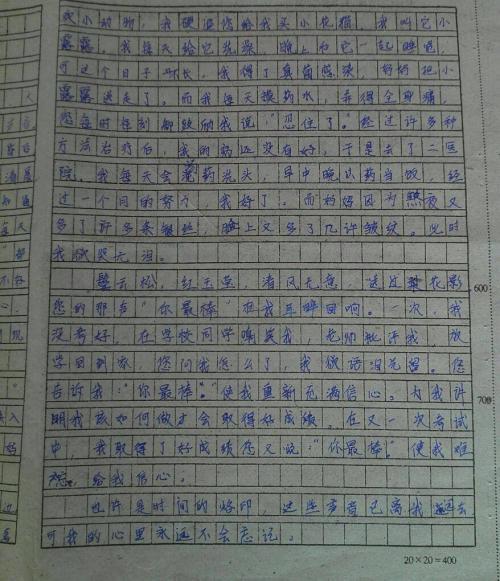 小动物，我硬逼您给我买小花猫，我叫它小
露露。我每天给它洗澡，晚上和它一起睡觉，
可这个日子不长，我得了真菌感染，妈妈把小
露露送走了。而我每天擦药水，弄得全身痛，
您每时每刻都鼓励我说：“忍住了。”经过许多种
方法治疗后，我的病还没有好，于是去了二医
院，我每天会药洗头，早中晚以药当饭，经
过一个月的努力，我好了。而妈妈因为熬夜又
多了许多银丝，脸上又多了几许皱纹。此时
我欲哭无泪。
碧云松，红玉莹，清风无意，送过花影
您的那句“你最棒”在我耳畔回响。一次，我
没考好，在学校同学嘲笑我，老师批评我，放
学回到家，您问我怎么了，我欲语泪先留。您
告诉我：“你最棒。”使我重新充满信心。为我讲
明我该如何做才会取得好成绩。在又一次考试
中，我取得了好成绩您又说：“你最棒。”使我难
忘，给我信心；
也许是时间的烙印，这些声音已离我远去
可我的心里永远不会忘记。
600
700
20×20=400